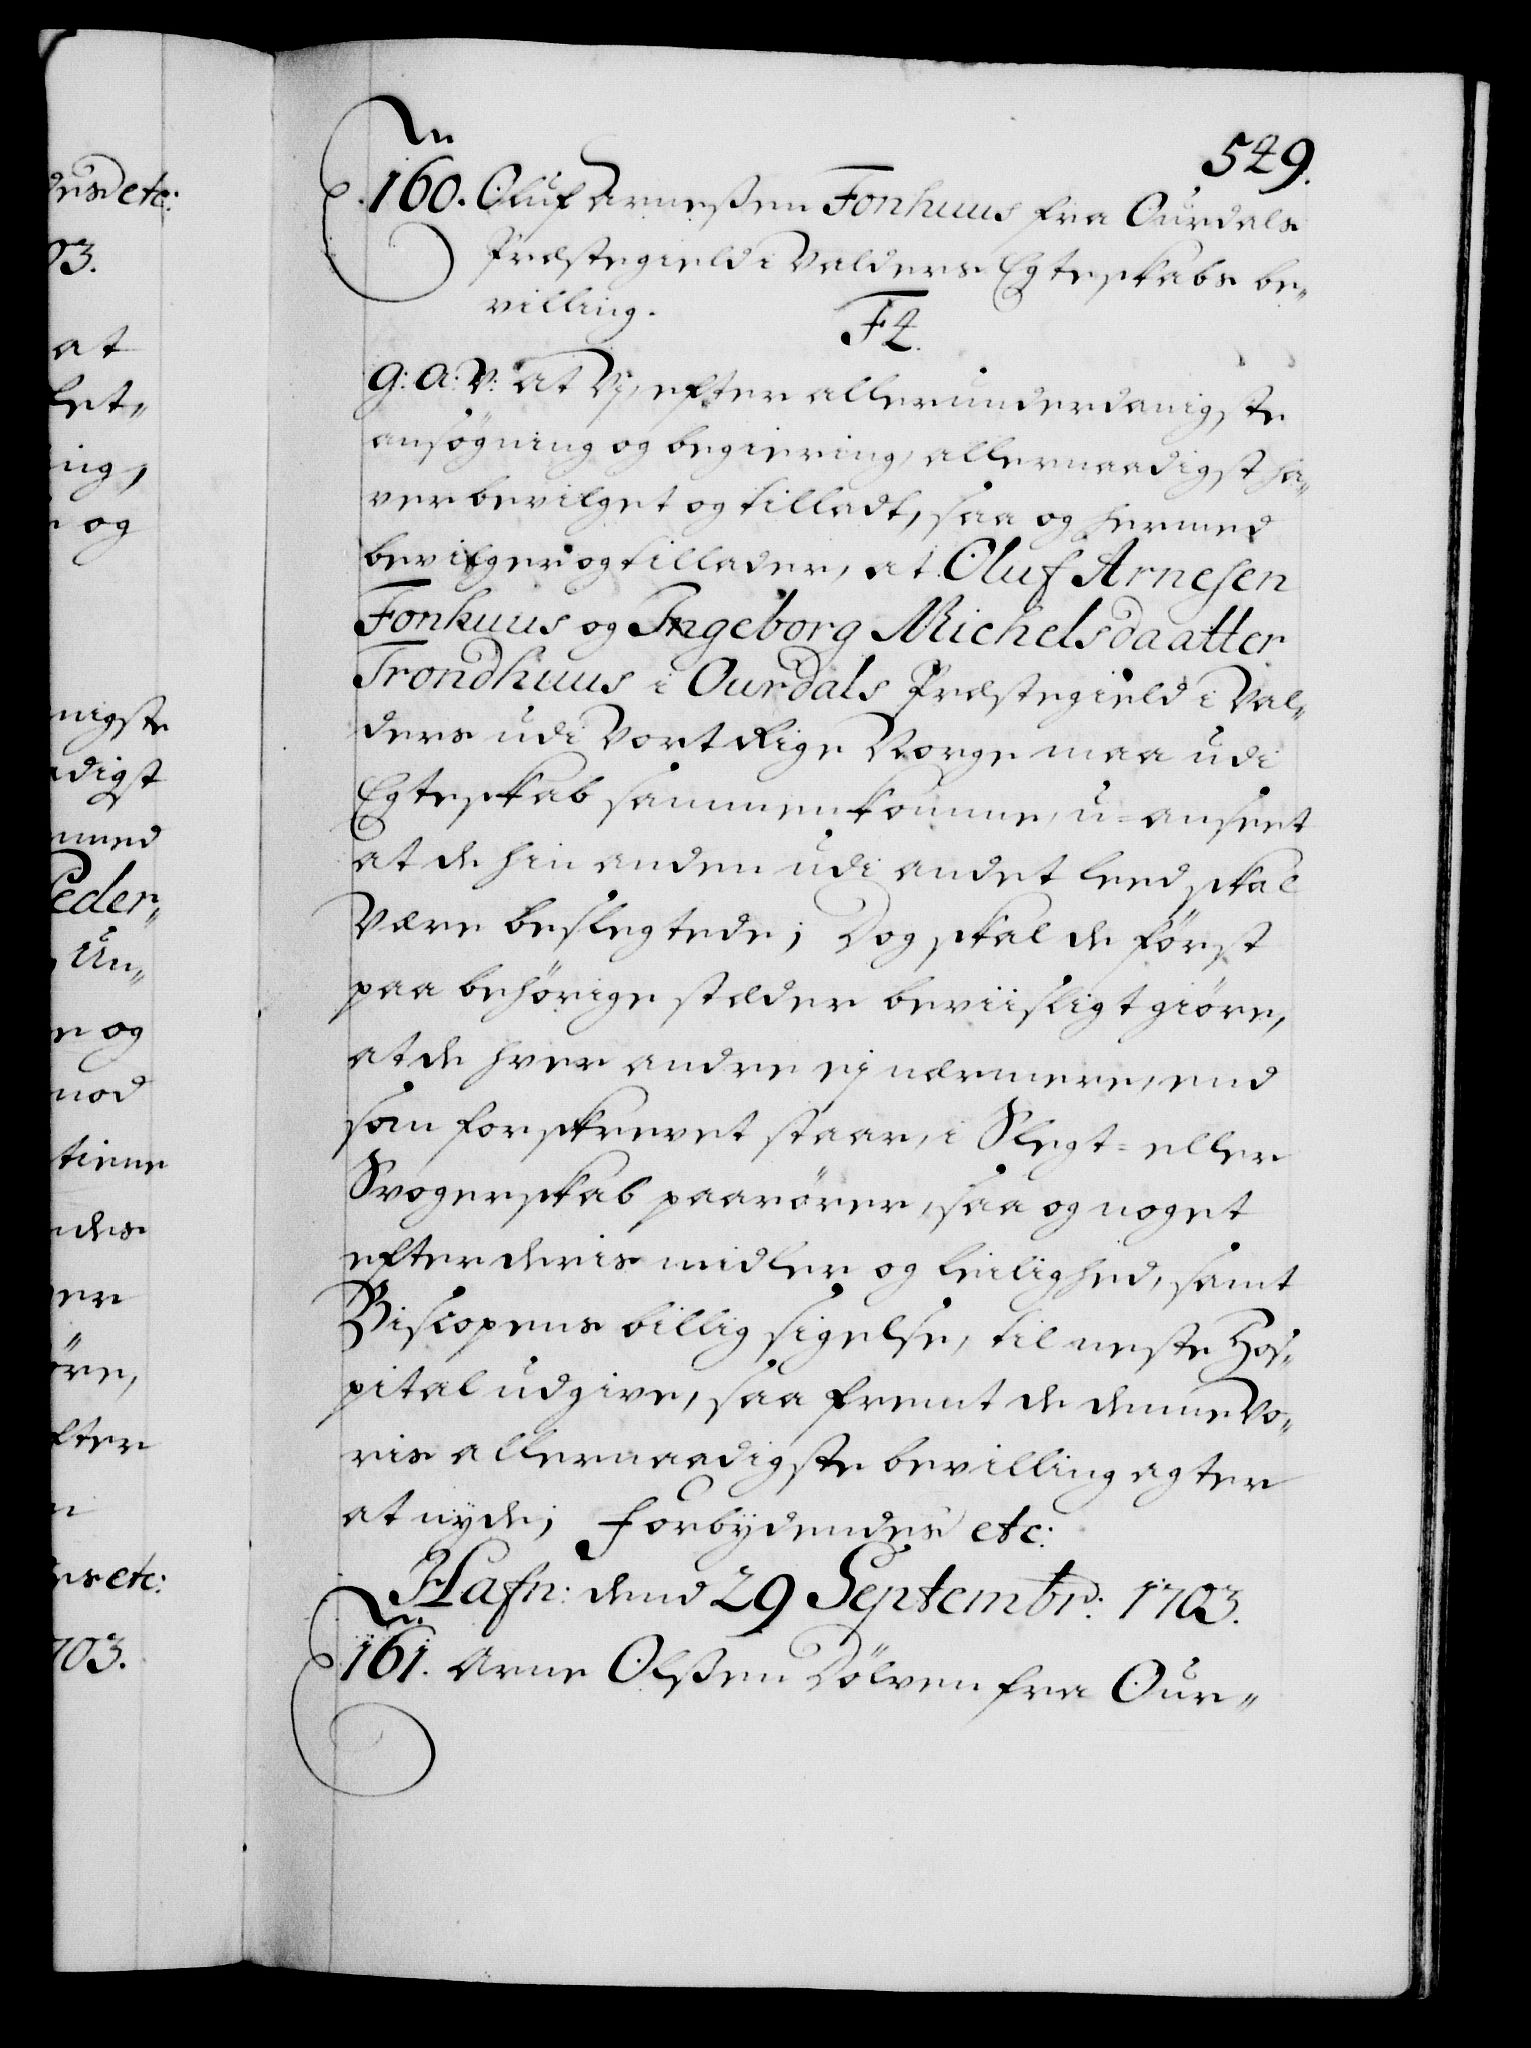 dus etc:
03.
at
let„
ing,
og
nigste
adigst
rmed
Peder„
, Un„
e og
mod
tiene
ndes
er
öre,
fter
n
es etc:
703.
549.
No
160. Oluf Arneßen Fonhuus fra Ourdals
Præstegield i Valders Egteskabs be„
villing.
F4.
G: A: V: at Vj, efter allerunderdanigste
ansögning og begiering, allernaadigst ha„
ver bevilget og tilladt, saa og hermed
bevilger og tillader, at Oluf Arnesen
Fonhuus og Ingeborg Michelsdaatter
Trondhuus i Ourdals Præstegield i Val„
ders udi Vort Rige Norge maa udi
Egteskab sammenkomme, u=anseet
at de hin anden udi andet leed skal
være beslegtede; Dog skal de först
paa behörige stæder beviisligt giöre,
at de hver andre ej nærmere, end
som forskrevet staar, i Slegt= eller
Svogerskab paarörer, saa og noget
efter deris midler og leilighed, samt
Biscopens billig sigelse, til neste Hos„
pital udgive, saa fremt de denne Vo„
ris allernaadigste bevilling agter
at nyde; Forbydendes etc:
Hafn: dend 29 Septembr: 1703.
No
161. Arne Olßen Dölven fra Our„